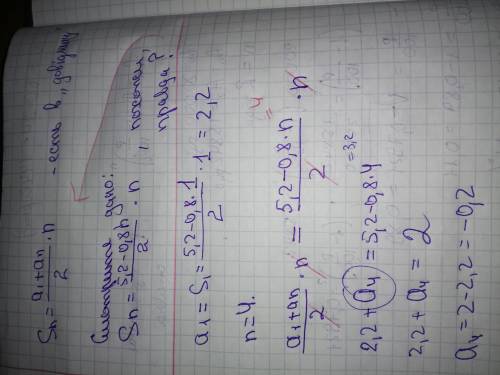 Sn = (a1+an)/2 · n - есть в „довіднику
Смотрите дано:
Sn = (5,2-0,8n)/2 · n, похожи, правда?
a1 = S1 = (5,2-0,8·1)/2 · 1 = 2,2
n=4.
(a1+an)/2 · n = (5,2-0,8·n)/2 · n
4
2,2 + a4 = 5,2-0,8·4
=3,2
2,2 + a4 = 2
a4 = 2-2,2 = -0,2